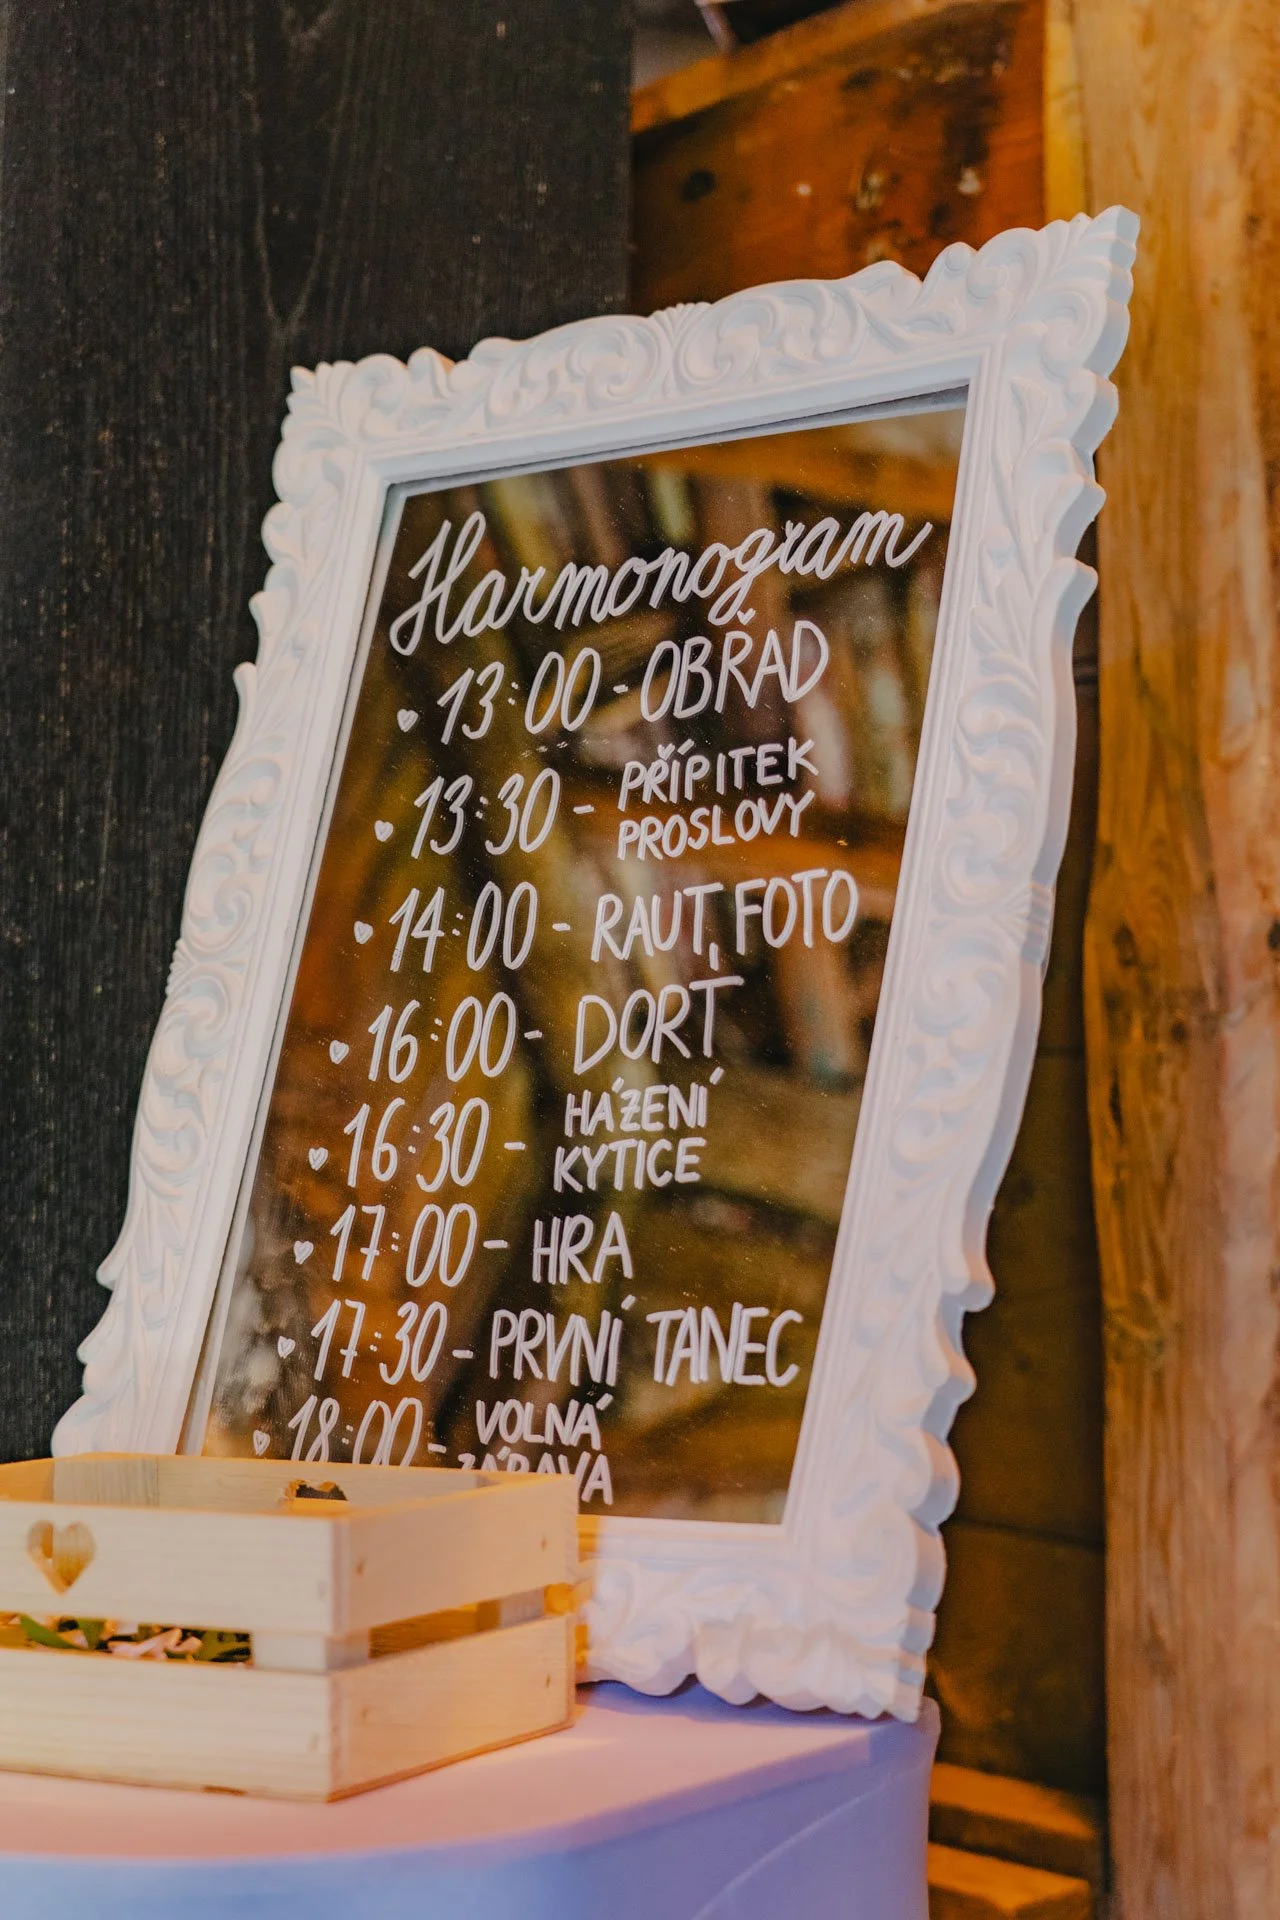 Harmonogram
13:00 - OBŘAD
13:30 - PŘÍPITEK
PROSLOVY
14:00 - RAUT, FOTO
16:00 - DORT
16:30 - HÁZENÍ
KYTICE
17:00 - HRA
17:30 - PRVNÍ TANEC
18:00 - VOLNÁ
ZÁBAVA